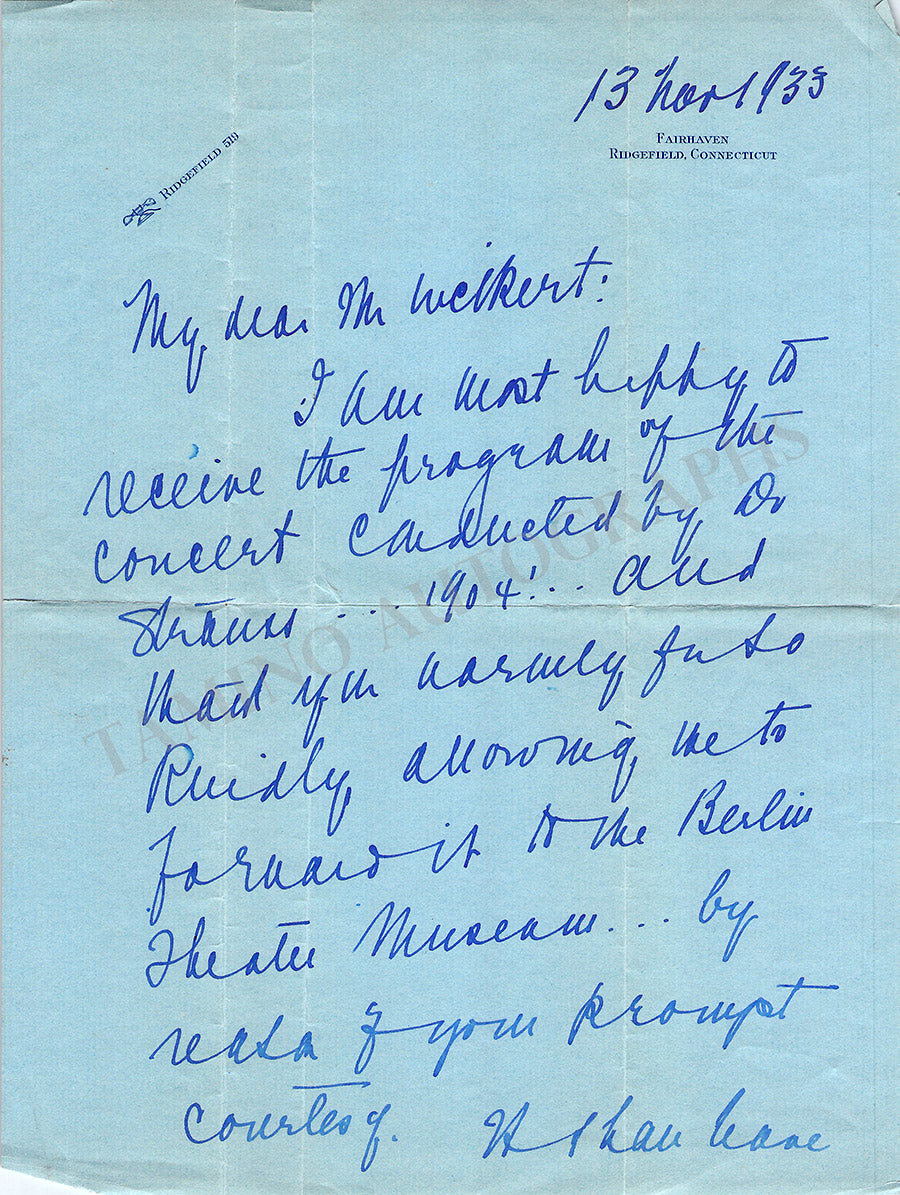 13 Nov 1933
FAIRHAVEN
RIDGEFIELD, CONNECTICUT
RIDGEFIELD 519
My dear Mr Weikert:
I am most happy to
receive the program of the
concert conducted by Dr
Strauss .... 1904!... and
thank you warmly for so
kindly allowing me to
forward it to the Berlin
Theater Museum... by
reason of your prompt
courtesy. It shall have
TAMINO AUTOGRAPHS